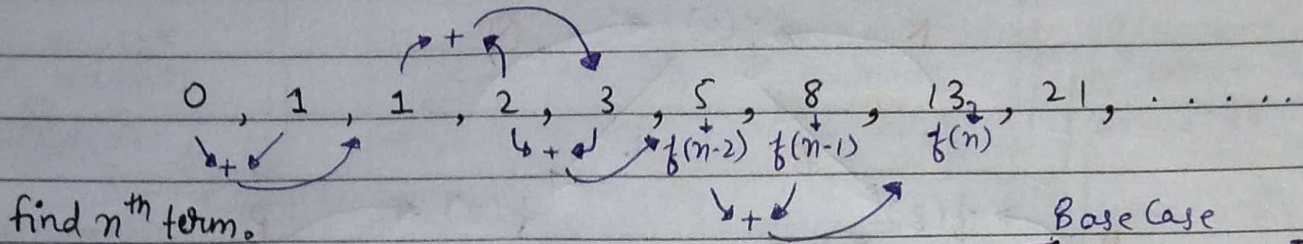 +
0, 1, 1, 2, 3, 5, 8, 13, 21, . . . . . .
+ + f(n-2) f(n-1) f(n)
+
find nth term. Base Case